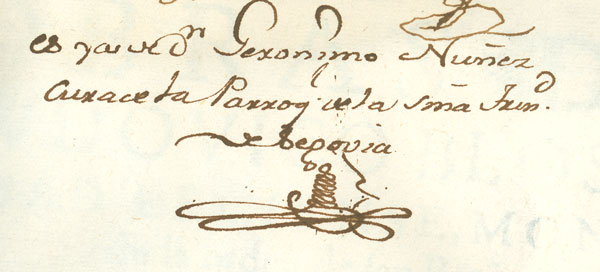 es de D.ⁿ Geronimo Nuñez
Cura de la Parroq de la Sma Trin.ᵈ
de Segovia